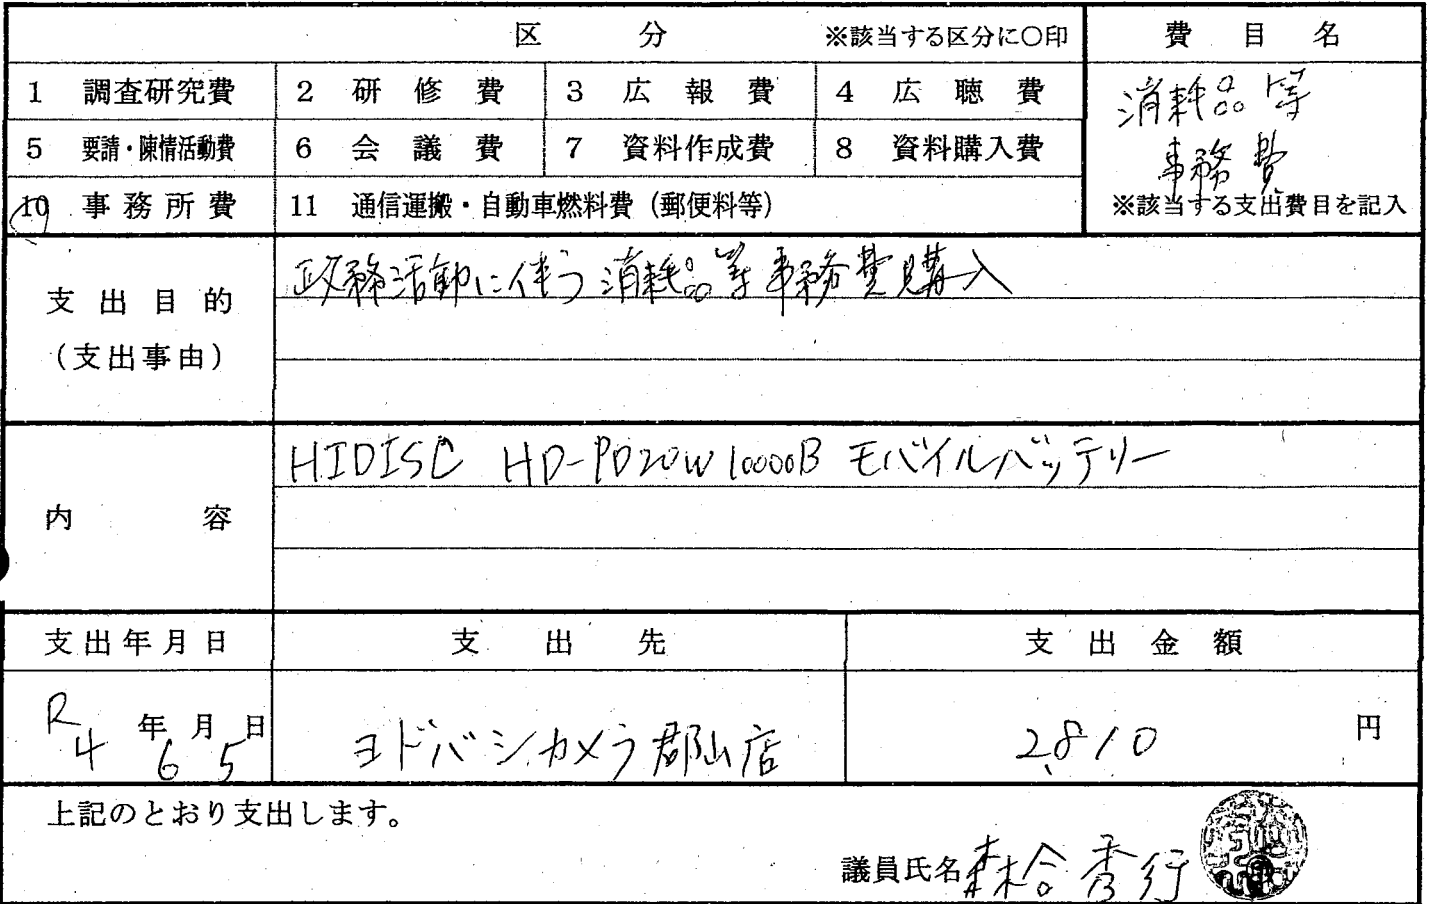 区 分 ※該当する区分に○印 費 目 名
1 調査研究費 2 研 修 費 3 広 報 費 4 広 聴 費
消耗品等
5 要請・陳情活動費 6 会 議 費 7 資料作成費 8 資料購入費
事務費
10 事務所費 11 通信運搬・自動車燃料費（郵便料等） ※該当する支出費目を記入
支出目的
（支出事由）
政務活動に伴う消耗品等事務費購入
内 容
HIDISC HD-PD20W10000B モバイルバッテリー
支出年月日 支 出 先 支 出 金 額
R4年6月5日 ヨドバシカメラ郡山店 2,810 円
上記のとおり支出します。
議員氏名 森合秀行